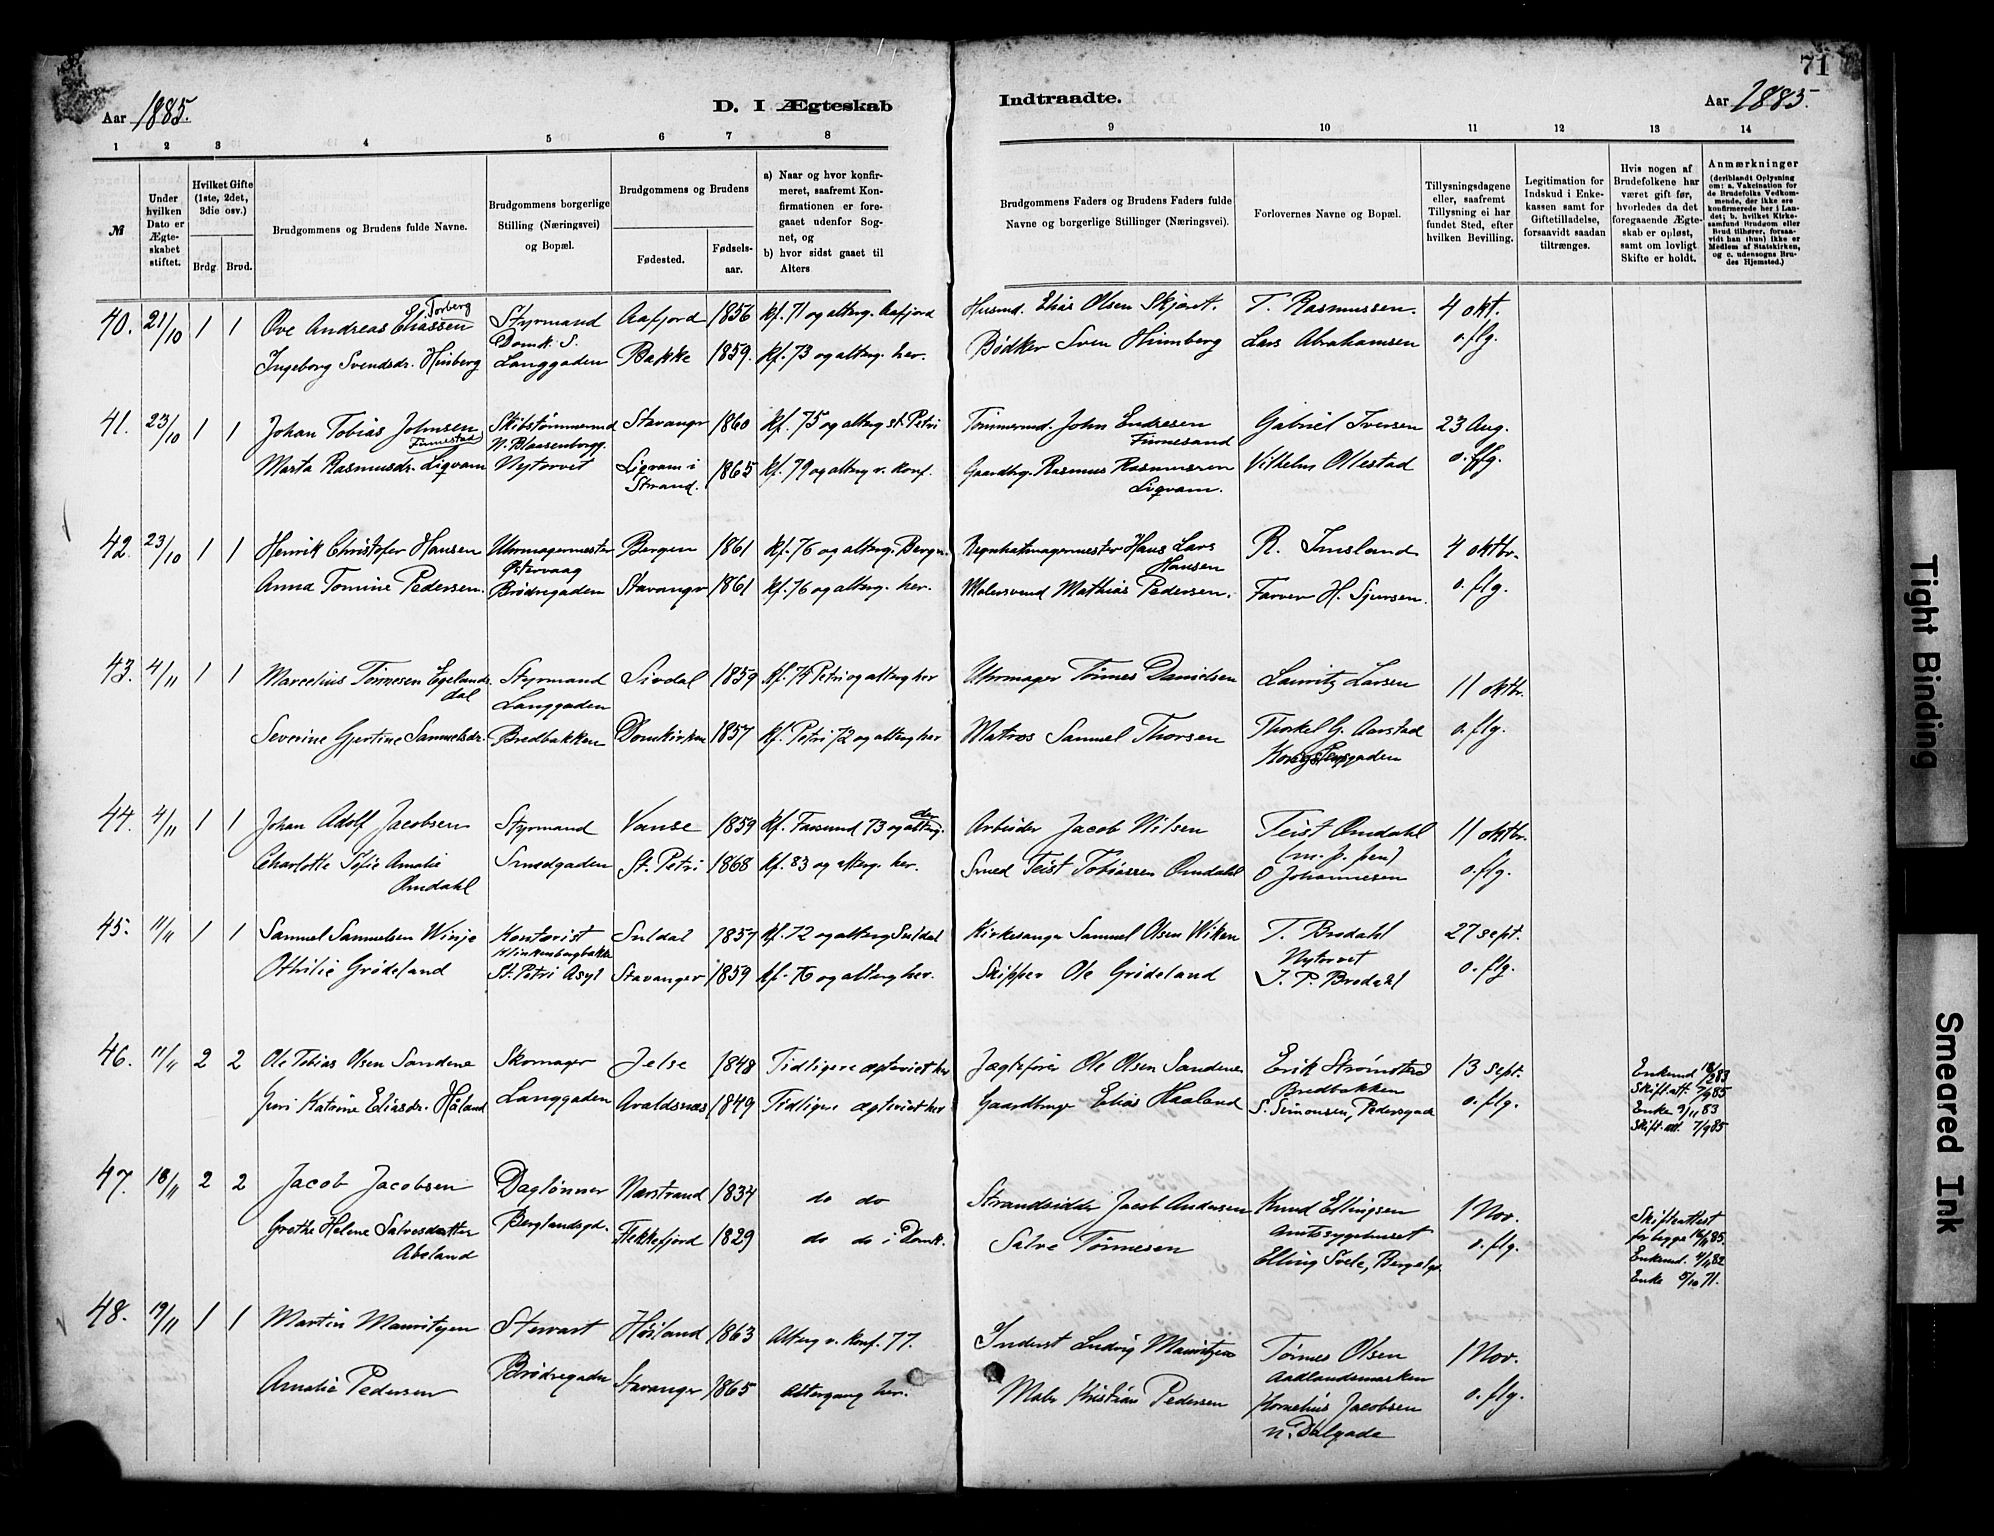 71
Aar 1885.
D. I Ægteskab
Indtraadte.
Aar 1885.
1 2 3 4 5 6 7 8 9 10 11 12 13 14
№
Under hvilken Dato er Ægteskabet stiftet.
Hvilket Gifte (1ste, 2det, 3die osv.)
Brdg. Brud.
Brudgommens og Brudens fulde Navne.
Brudgommens borgerlige Stilling (Næringsvei) og Bopæl.
Brudgommens og Brudens
Fødested. Fødselsaar.
a) Naar og hvor konfirmeret, saafremt Konfirmationen er foregaaet udenfor Sognet, og
b) hvor sidst gaaet til Alters
Brudgommens Faders og Brudens Faders fulde Navne og borgerlige Stillinger (Næringsvei).
Forlovernes Navne og Bopæl.
Tillysningsdagene eller, saafremt Tillysning ei har fundet Sted, efter hvilken Bevilling.
Legitimation for Indskud i Enkekassen samt for Giftetilladelse, forsaavidt saadan tiltrænges.
Hvis nogen af Brudefolkene har været gift før, hvorledes da det foregaaende Ægteskab er opløst, samt om lovligt Skifte er holdt.
Anmærkninger
(deriblandt Oplysning om: a. Vakcination for de Brudefolks Vedkommende, der ikke ere konfirmerede her i Landet; b. hvilket Kirkesamfund Brudgom eller Brud tilhører, forsaavidt han (hun) ikke er Medlem af Statskirken, og c. udensogns Brudes Hjemsted.)
40. 21/10 1 1 Ove Andreas Eliassen Torberg Styrmand Aafjord 1856 kf. 71 og alterg. Aafjord Husmd. Elias Olsen Skjøret. T. Rasmussen. 4 okt.
Domk. S.
Ingeborg Svendsdr. Hinberg Langgaden Bakke 1859. kf. 73 og alterg. her. Bødker Sven Hinnberg Lars Abrahamsen o. flg.
41. 23/10 1 1 Johan Tobias Johnsen Skibstømmermd Stavanger 1860 kf. 75 og alterg st. Petri Tømmermd. John Endresen Gabriel Iversen 23 Aug.
Finnestad N. Blaasenborgg. Finnesand
Marta Rasmusdr. Liqvam Nytorvet Liqvam i 1865 kf. 79 og alterg v. konf. Gaardbrg. Rasmus Rasmussen Vilhelm Ollestad o. flg.
Strand. Liqvam.
42. 23/10 1 1 Henrik Christofer Hansen Uhrmagermester Bergen 1861 kf. 76 og alterg. Bergen Regnhatmagermester Hans Lars R. Imsland 4 oktbr.
Østervaag Hansen
Anna Tomine Pedersen. Brødregaden Stavanger 1861 kf. 76 og alterg. her. Malersvend Mathias Pedersen. Farver H. Sjursen. o. flg.
43. 4/11 1 1 Marcelius Tønnesen Egelands- Styrmand Sirdal 1859 kf. 74 Petri og alterg her Uhrmager Tønnes Danielsen Lauritz Larsen 11 oktbr.
dal Langgaden
Severine Gjertine Samuelsdr. Bredbakken Domkirken 1857 kf. Petri 72 og alterg her Matros Samuel Thorsen Thorkel G. Aarstad o. flg.
Kongstensgaden
44. 4/11 1 1 Johan Adolf Jacobsen Styrmand Vanse 1859 kf. Farsund 73 og alterg. der Arbeider Jacob Nilsen Teist Omdahl 11 oktbr.
(m. p. pen)
Charlotte Sofie Amalie Smedgaden St. Petri 1868 kf. 83 og alterg. her. Smed Teist Tobiassen Omdahl O Johannesen o. flg.
Omdahl
45. 11/11 1 1 Samuel Samuelsen Winje Kontorist Suldal 1857 kf. 72 og alterg Suldal Kirkesanger Samuel Olsen Wiken T. Brodahl 27 sept.
Klinkenbergbakken Nytorvet
Othilie Grødeland St. Petri Asyl Stavanger 1859 kf. 76 og alterg her. Skipper Ole Grødeland J. P. Brodahl o. flg.
46. 11/11 2 2 Ole Tobias Olsen Sandene Skomager Jelse 1848 Tidligere ægteviet her Jægtefører Ole Olsen Sandenes Erik Strømsted 13 sept. Enkemd 18/2 83
Bredbakken Skift.att. 7/9 85
Guri Katrine Eliasdr. Håland Langgaden Avaldsnæs 1849 Tidligere ægteviet her Gaardbruger Elias Haaland S. Simonsen, Pedersgade o. flg. Enke 9/11 83
Skift. att. 7/9 85
47. 18/11 2 2 Jacob Jacobsen Daglønner Nærstrand 1834 do do Strandsidder Jacob Andersen Knud Ellingsen 1 Nov. Skifteattest
Amtssygehuset for begge 16/11 85.
Grethe Helene Salvesdatter Berglandsgd. Flekkefjord 1829 do do i Domk. Salve Tønnesen Elling Svele, Bergelgd o. flg. Enkemd. 4/11 82
Abeland Enke 5/10 71.
48. 19/11 1 1 Martin Mauritzen Stewart Høiland 1863 Alterg v. konf. 77. Inderst Ludvig Mauritzen Tønnes Olsen 1 Nov.
Aadlandsmarken
Amalie Pedersen Brødregaden Stavanger 1865 Altergang her. Maler Kristian Pedersen Kornelius Jacobsen o. flg.
n. Dalgade
Tight Binding
Smeared Ink